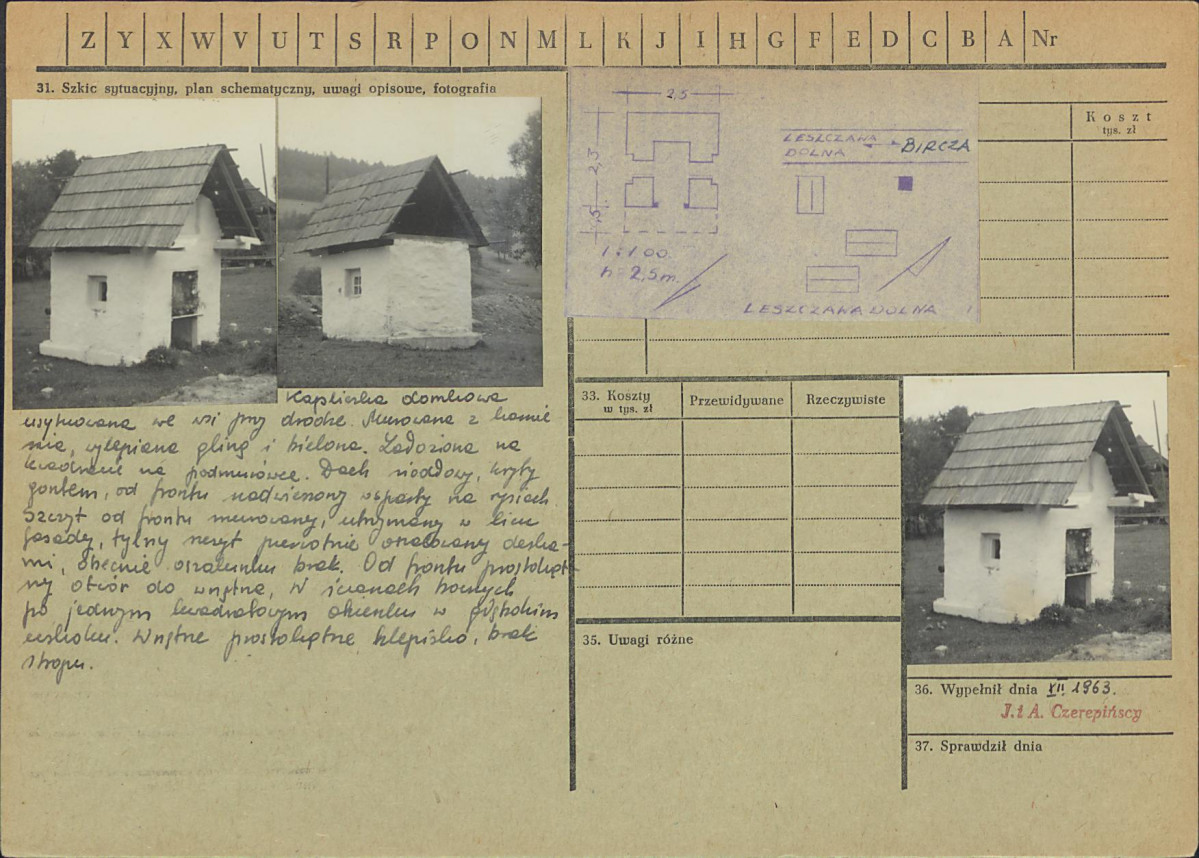 Z Y X W V U T S R P O N M L K J I H G F E D C B A Nr
31. Szkic sytuacyjny, plan schematyczny, uwagi opisowe, fotografia
Kapliczka domkowa
usytuowana we wsi przy drodze. Murowana z kamie
nia, wylepiana gliną i bielona. Założona na
kwadracie na podmurówce. Dach siodłowy, kryty
gontem, od frontu nadwieszony wsparty na rysiach
Szczyt od frontu murowany, utrzymany w licu
fasady, tylny szczyt pierwotnie oszalowany deska-
mi, obecnie oszalunku brak. Od frontu prostokąt-
ny otwór do wnętrza, W ścianach bocznych
po jednym kwadratowym okienku w głębokim
uskoku. Wnętrze prostokątne klepisko, brak
stropu.
2,5
2,3
1,5
1:100
h = 2,5 m
LESZCZAWA
DOLNA
BIRCZA
LESZCZAWA DOLNA
Koszt
tys. zł
33. Koszty
w tys. zł
Przewidywane
Rzeczywiste
35. Uwagi różne
36. Wypełnił dnia XII 1963.
J. i A. Czerepińscy
37. Sprawdził dnia